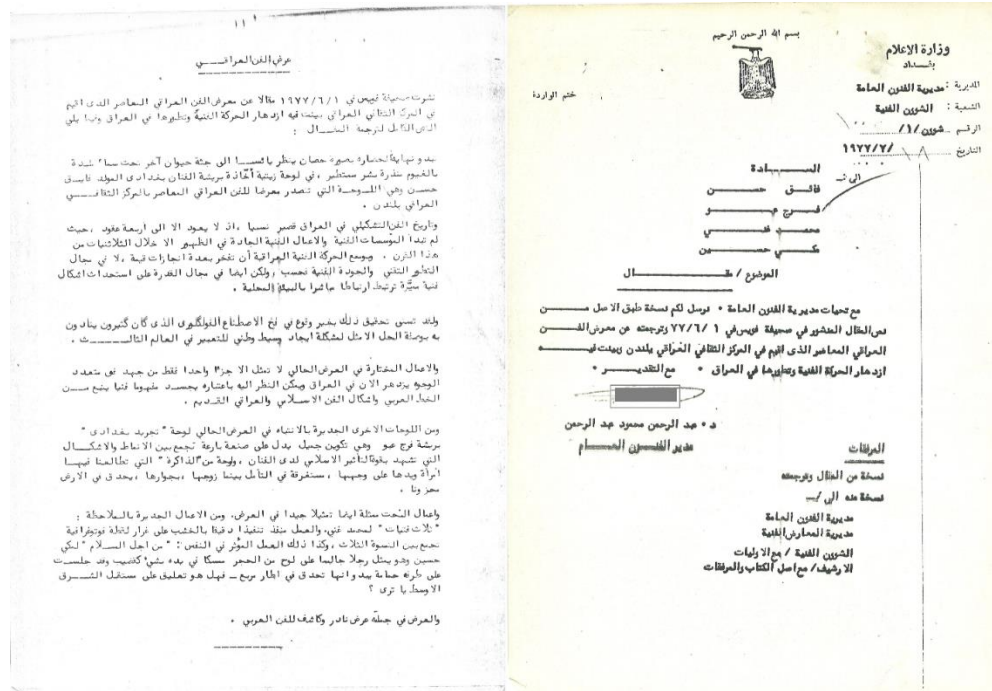 بسم الله الرحمن الرحيم
وزارة الاعلام
بغـداد
المديرية : مديرية الفنون العامة
الشعبة : الشؤون الفنية
الرقم شؤون/١/
التاريخ ١٩٧٧/٧/١٨
ختم الواردة
الى
الســـادة
فائـق حســـن
فــرج عبـــو
محمــد غنـــي
مكـي حســـين
الموضوع / مقـــال
مع تحيات مديرية الفنون العامة • نرسل لكم نسخة طبق الاصل مـــن
نص المقال المنشور في صحيفة فويس في ٧٧/٦/١ وترجمته عن معرض الفـــن
العراقي المعاصر الذى اقيم في المركز الثقافي العراقي بلندن وبينت فيـــه
ازدهار الحركة الفنية وتطورها في العراق • مع التقديـــر •
د • عبد الرحمن محمود عبد الرحمن
مدير الفنـــون العـــام
المرفقات
نسخة من المقال وترجمته
نسخة منه الى/ــ
مديرية الفنون العامة
مديرية المعارض الفنية
الشؤون الفنية / مع الاوليات
الارشيف/ مع اصل الكتاب والمرفقات
عرض الفن العراقـــي
نشرت صحيفة فويس في ١٩٧٧/٦/١ مقالا عن معرض الفن العراقي المعاصر الذى اقيم
في المركز الثقافي العراقي بينت فيه ازدهار الحركة الفنية وتطورها في العراق وفيما يلي
النص الكامل لترجمة المقـــال :
تبدو نهاية الحضارة بصورة حصان ينظر يائســا الى جثة حيوان آخر تحت سماء ملبدة
بالغيوم منذرة بشر مستطير ، في لوحة زيتية أخاذة بريشة الفنان بغدادى المولد فائــق
حســن وهي اللـــوحـة التي تتصدر معرضا للفن العراقي المعاصر بالمركز الثقافـــي
العراقي بلندن •
وتاريخ الفن التشكيلي في العراق قصير نسبيا ، اذ لا يعود الا الى أربعة عقود ، حيث
لم تبدأ المؤسسات الفنية والاعمال الفنية الجادة في الظهور الا خلال الثلاثينات من
هذا القرن • وبوسع الحركة الفنية العراقية أن تفخر بعدة انجازات قيمة ، لا في مجال
التطور التقني والجودة الفنية فحسب ، ولكن ايضا في مجال القدرة على استحداث اشكال
فنية مميزة ترتبط ارتباطا مباشرا بالبيئة المحلية •
ولقد تسنى تحقيق ذلك بغير وقوع في فخ الاصطناع الفولكلورى الذى كان كثيرون ينادون
به بوصفه الحل الامثل لمشكلة ايجاد وسيط وطني للتعبير في العالم الثالـــث •
والاعمال المختارة في العرض الحالي لا تمثل الا جزءا واحدا فقط من جهد فني متعدد
الوجوه يزدهر الان في العراق ويمكن النظر اليه باعتباره يجســد مفهوما فنيا ينبع مـــن
الخط العربي واشكال الفن الاسلامي والعراقي القـديم •
ومن اللوحات الاخرى الجديرة بالانتباه في العرض الحالي لوحة " تجريد بغدادى "
بريشة فرج عبو وهي تكوين جميل يدل على صنعة بارعة تجمع بين الانماط والاشكـــال
التي تشهد بقوة التأثير الاسلامي لدى الفنان ، ولوحة من "الذاكرة" التي تطالعنا فيهـا
امرأة ويدها على وجهها ، مستغرقة في التأمل بينما زوجها ، بجوارها ، يحدق في الارض
محزونا •
واعمال النحت ممثلة ايضا تمثيلا جيدا في العرض. ومن الاعمال الجديرة بالملاحظة :
" ثلاث فتيات " لمحمد غني، والعمل منفذ تنفيذا دقيقا بالخشب على غرار لقطة فوتوغرافية
تجمع بين النسوة الثلاث ، وكذا ذلك العمل المؤثر في النفس : " من اجل الســـلام " لمكي
حسين وهو يمثل رجلا جالسا على لوح من الحجر ممسكا في يده بشيء كقضيب وقد جلســـت
على طرفه حمامة يبدو انها تحدق في اطار مربع ــ فهل هو تعليق على مستقبل الشـــرق
الاوسط يا ترى ؟
والعرض في جملته عرض نادر وكاشف للفن العربي •